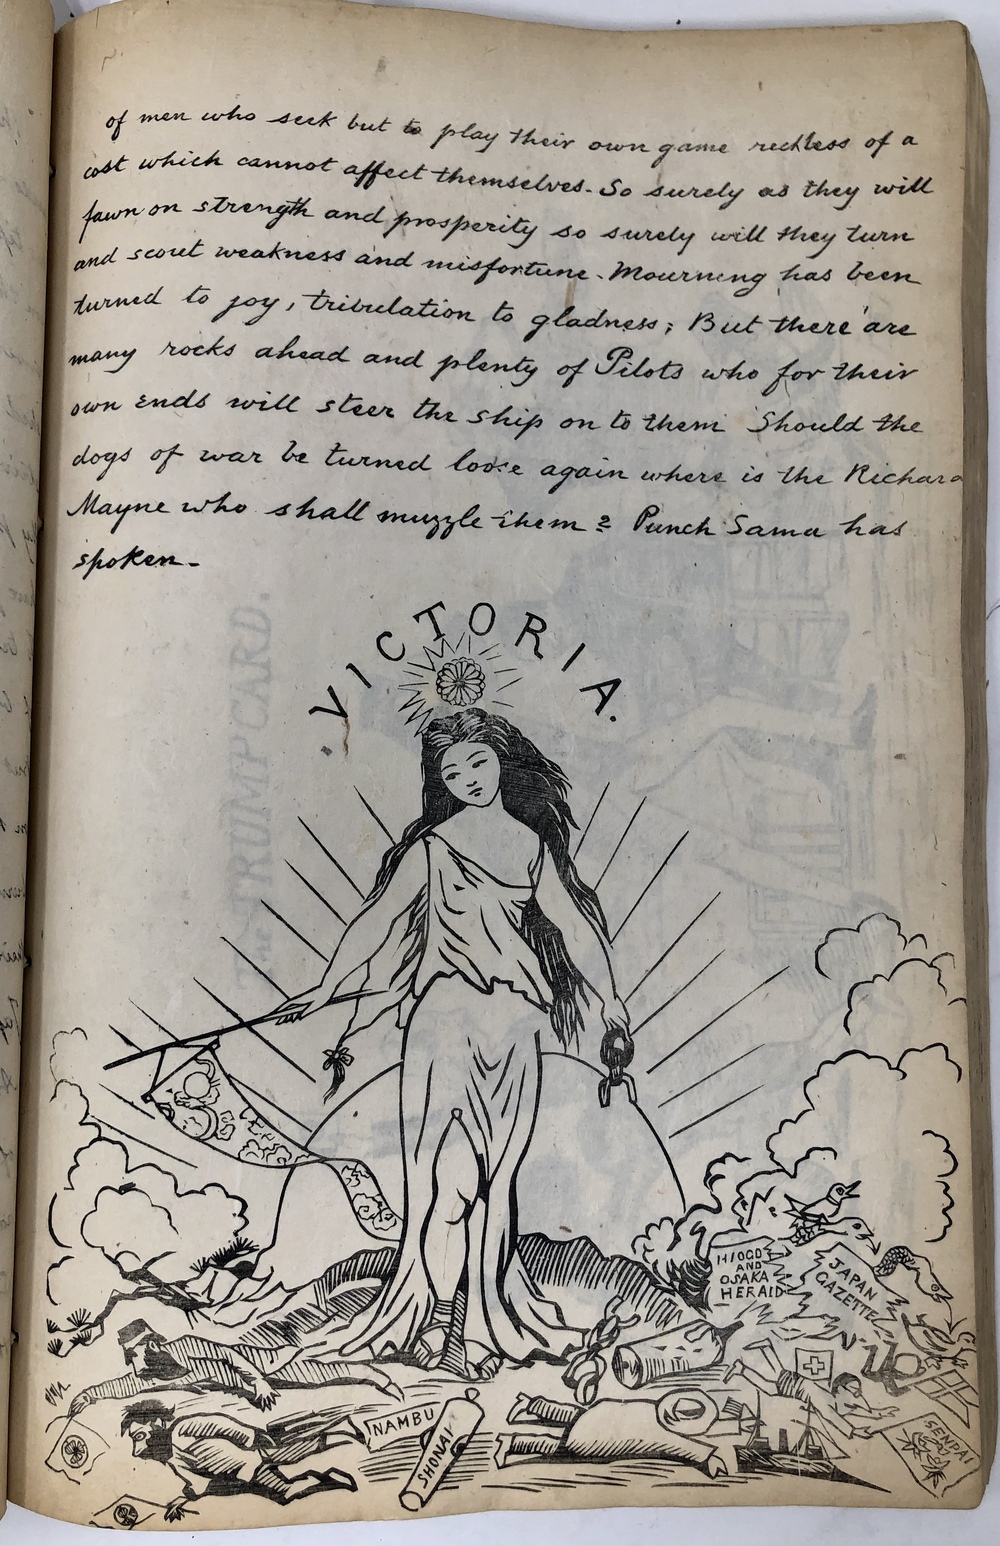 of men who seek but to play their own game reckless of a
cost which cannot affect themselves. So surely as they will
fawn on strength and prosperity so surely will they turn
and scout weakness and misfortune. Mourning has been
turned to joy, tribulation to gladness; But there are
many rocks ahead and plenty of Pilots who for their
own ends will steer the ship on to them Should the
dogs of war be turned loose again where is the Richard
Mayne who shall muzzle them? Punch Sama has
spoken.
VICTORIA.
The TRUMPCARD.
HIOGO
AND
OSAKA
HERALD
JAPAN
GAZETTE
NAMBU
SHONAI
SENDAI